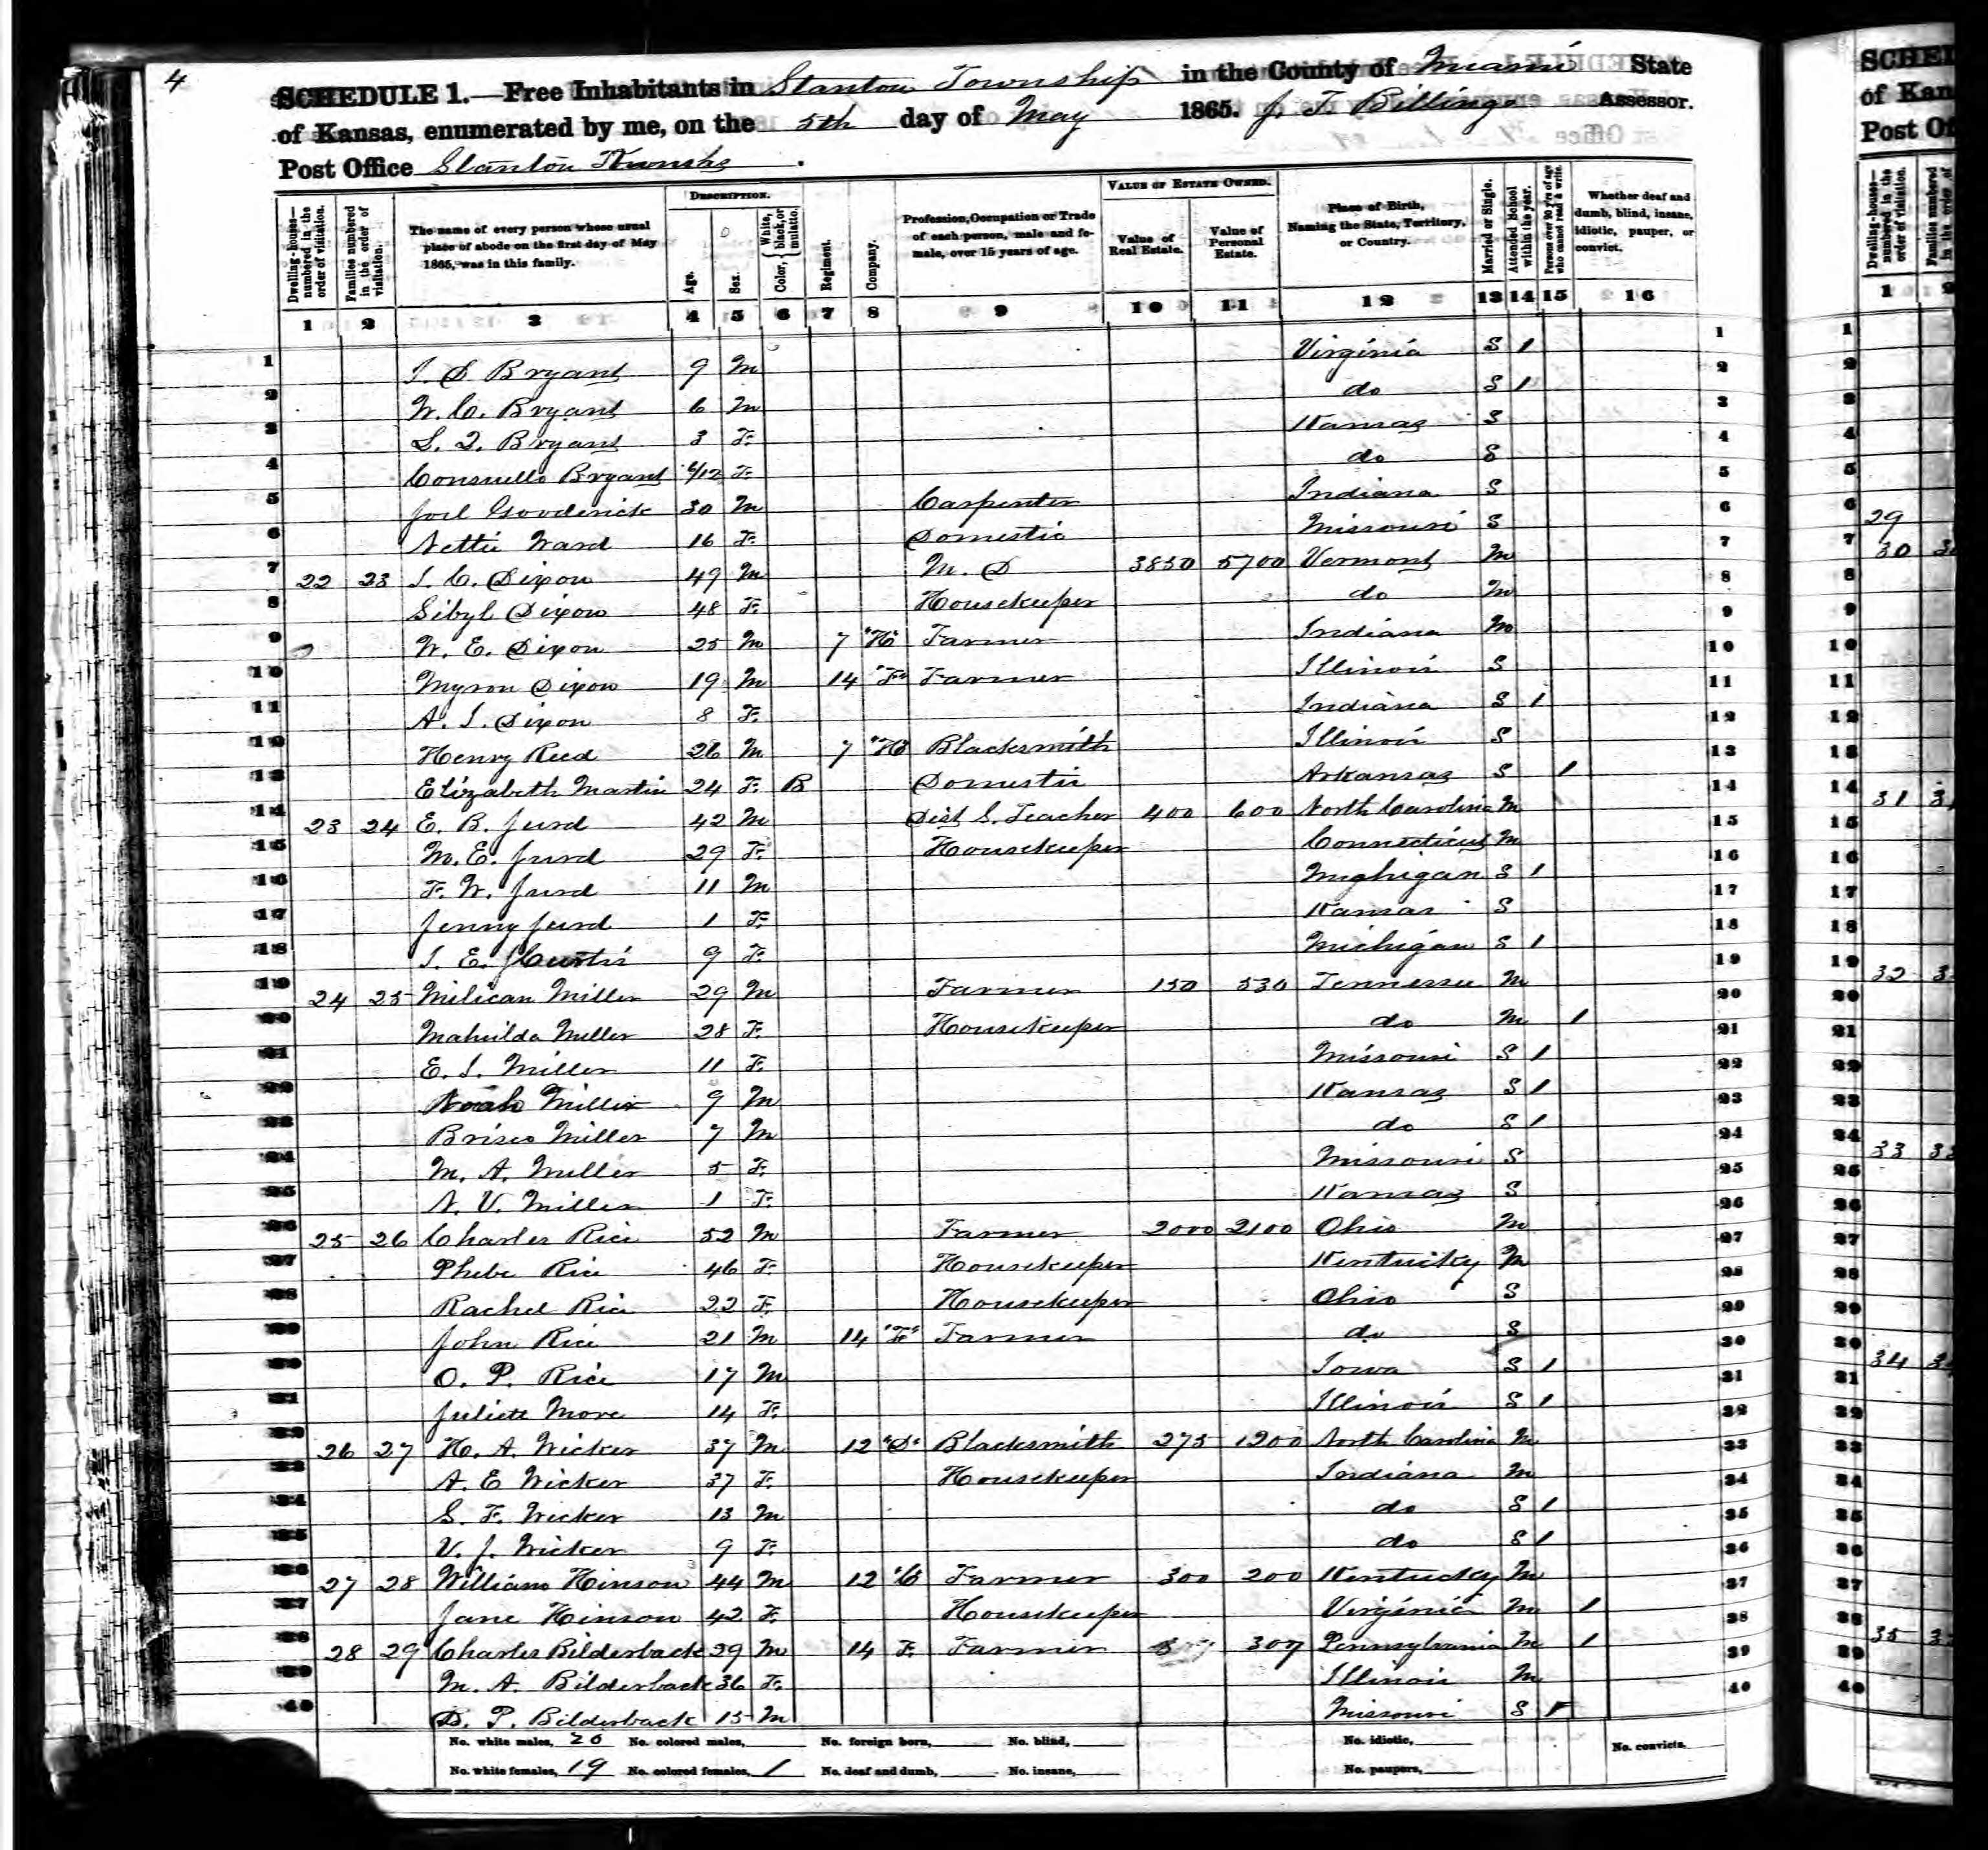 4
SCHEDULE 1.—Free Inhabitants in Stanton Township in the County of Miami State
of Kansas, enumerated by me, on the 5th day of May 1865. J. T. Billings Assessor.
Post Office Stanton
Description. Value of Estate Owned.
Dwelling-houses—numbered in the order of visitation. Families numbered in the order of visitation. The name of every person whose usual place of abode on the first day of May 1865, was in this family. Age. Sex. Color, White, black, or mulatto. Regiment. Company. Profession, Occupation or Trade of each person, male and female, over 15 years of age. Value of Real Estate. Value of Personal Estate. Place of Birth, Naming the State, Territory, or Country. Married or Single. Attended School within the year. Persons over 20 y'rs of age who cannot read & write. Whether deaf and dumb, blind, insane, idiotic, pauper, or convict.
1 2 3 4 5 6 7 8 9 10 11 12 13 14 15 16
1 J. S. Bryant 9 M Virginia S 1 1
2 W. C. Bryant 6 M do S 1 2
3 L. Q. Bryant 3 F. Kansas S 3
4 Consuello Bryant 6/12 F. do S 4
5 Joel Gooderick 30 M Carpenter Indiana S 5
6 Nettie Ward 16 F. Domestic Missouri S 6
7 22 23 J. C. Dixon 49 M M. D 3850 5700 Vermont M 7
8 Sibyl Dixon 48 F. Housekeeper do M 8
9 W. E. Dixon 25 M 7 "H" Farmer Indiana M 9
10 Myron Dixon 19 M 14 "F" Farmer Illinois S 10
11 A. J. Dixon 8 F. Indiana S 1 11
12 Henry Reed 26 M 7 "H" Blacksmith Illinois S 12
13 Elizabeth Martin 24 F. B Domestic Arkansas S 1 13
14 23 24 E. B. Jurd 42 M Dist S. Teacher 400 600 North Carolina M 14
15 M. E. Jurd 29 F. Housekeeper Connecticut M 15
16 F. W. Jurd 11 M Mighigan S 1 16
17 Jenny Jurd 1 F. Kansas S 17
18 J. E. Curtis 9 F. Michigan S 1 18
19 24 25 Milican Miller 29 M Farmer 150 530 Tennessee M 19
20 Mahulda Miller 28 F. Housekeeper do M 1 20
21 E. J. Miller 11 F. Missouri S 1 21
22 Noah Miller 9 M Kansas S 1 22
23 Brisco Miller 7 M do S 1 23
24 M. A. Miller 5 F. Missouri S 24
25 N. V. Miller 1 F. Kansas S 25
26 25 26 Charles Rice 52 M Farmer 2000 2100 Ohio M 26
27 Phebe Rice 46 F. Housekeeper Kentucky M 27
28 Rachel Rice 22 F. Housekeeper Ohio S 28
29 John Rice 21 M 14 "F" Farmer do S 29
30 O. P. Rice 17 M Iowa S 1 30
31 Juliett More 14 F. Illinois S 1 31
32 26 27 H. A. Wicker 37 M 12 "D" Blacksmith 275 1200 North Carolina M 32
33 A. E Wicker 37 F. Housekeeper Indiana M 33
34 S. F. Wicker 13 M do S 1 34
35 V. J. Wicker 9 F. do S 1 35
36 27 28 William Hinson 44 M 12 "C" Farmer 300 200 Kentucky M 36
37 Jane Hinson 42 F. Housekeeper Virginia M 1 37
38 28 29 Charles Bilderback 39 M 14 F. Farmer 307 Pennsylvania M 1 38
39 M. A. Bilderback 36 F. Illinois M 39
40 D. P. Bilderback 15 M Missouri S 1 40
No. white males, 20 No. colored males, No. foreign born, No. blind, No. idiotic, No. convicts,
No. white females, 19 No. colored females, 1 No. deaf and dumb, No. insane, No. paupers,
SCHE
of Kan
Post Of
Dwelling-houses—numbered in the order of visitation. Families numbered in the order of
1 2
1
2
3
4
5
6 29
7 30
8
9
10
11
12
13
14 31
15
16
17
18
19 32
20
21
22
23
24 33
25
26
27
28
29
30 34
31
32
33
34
35
36
37
38 35
39
40